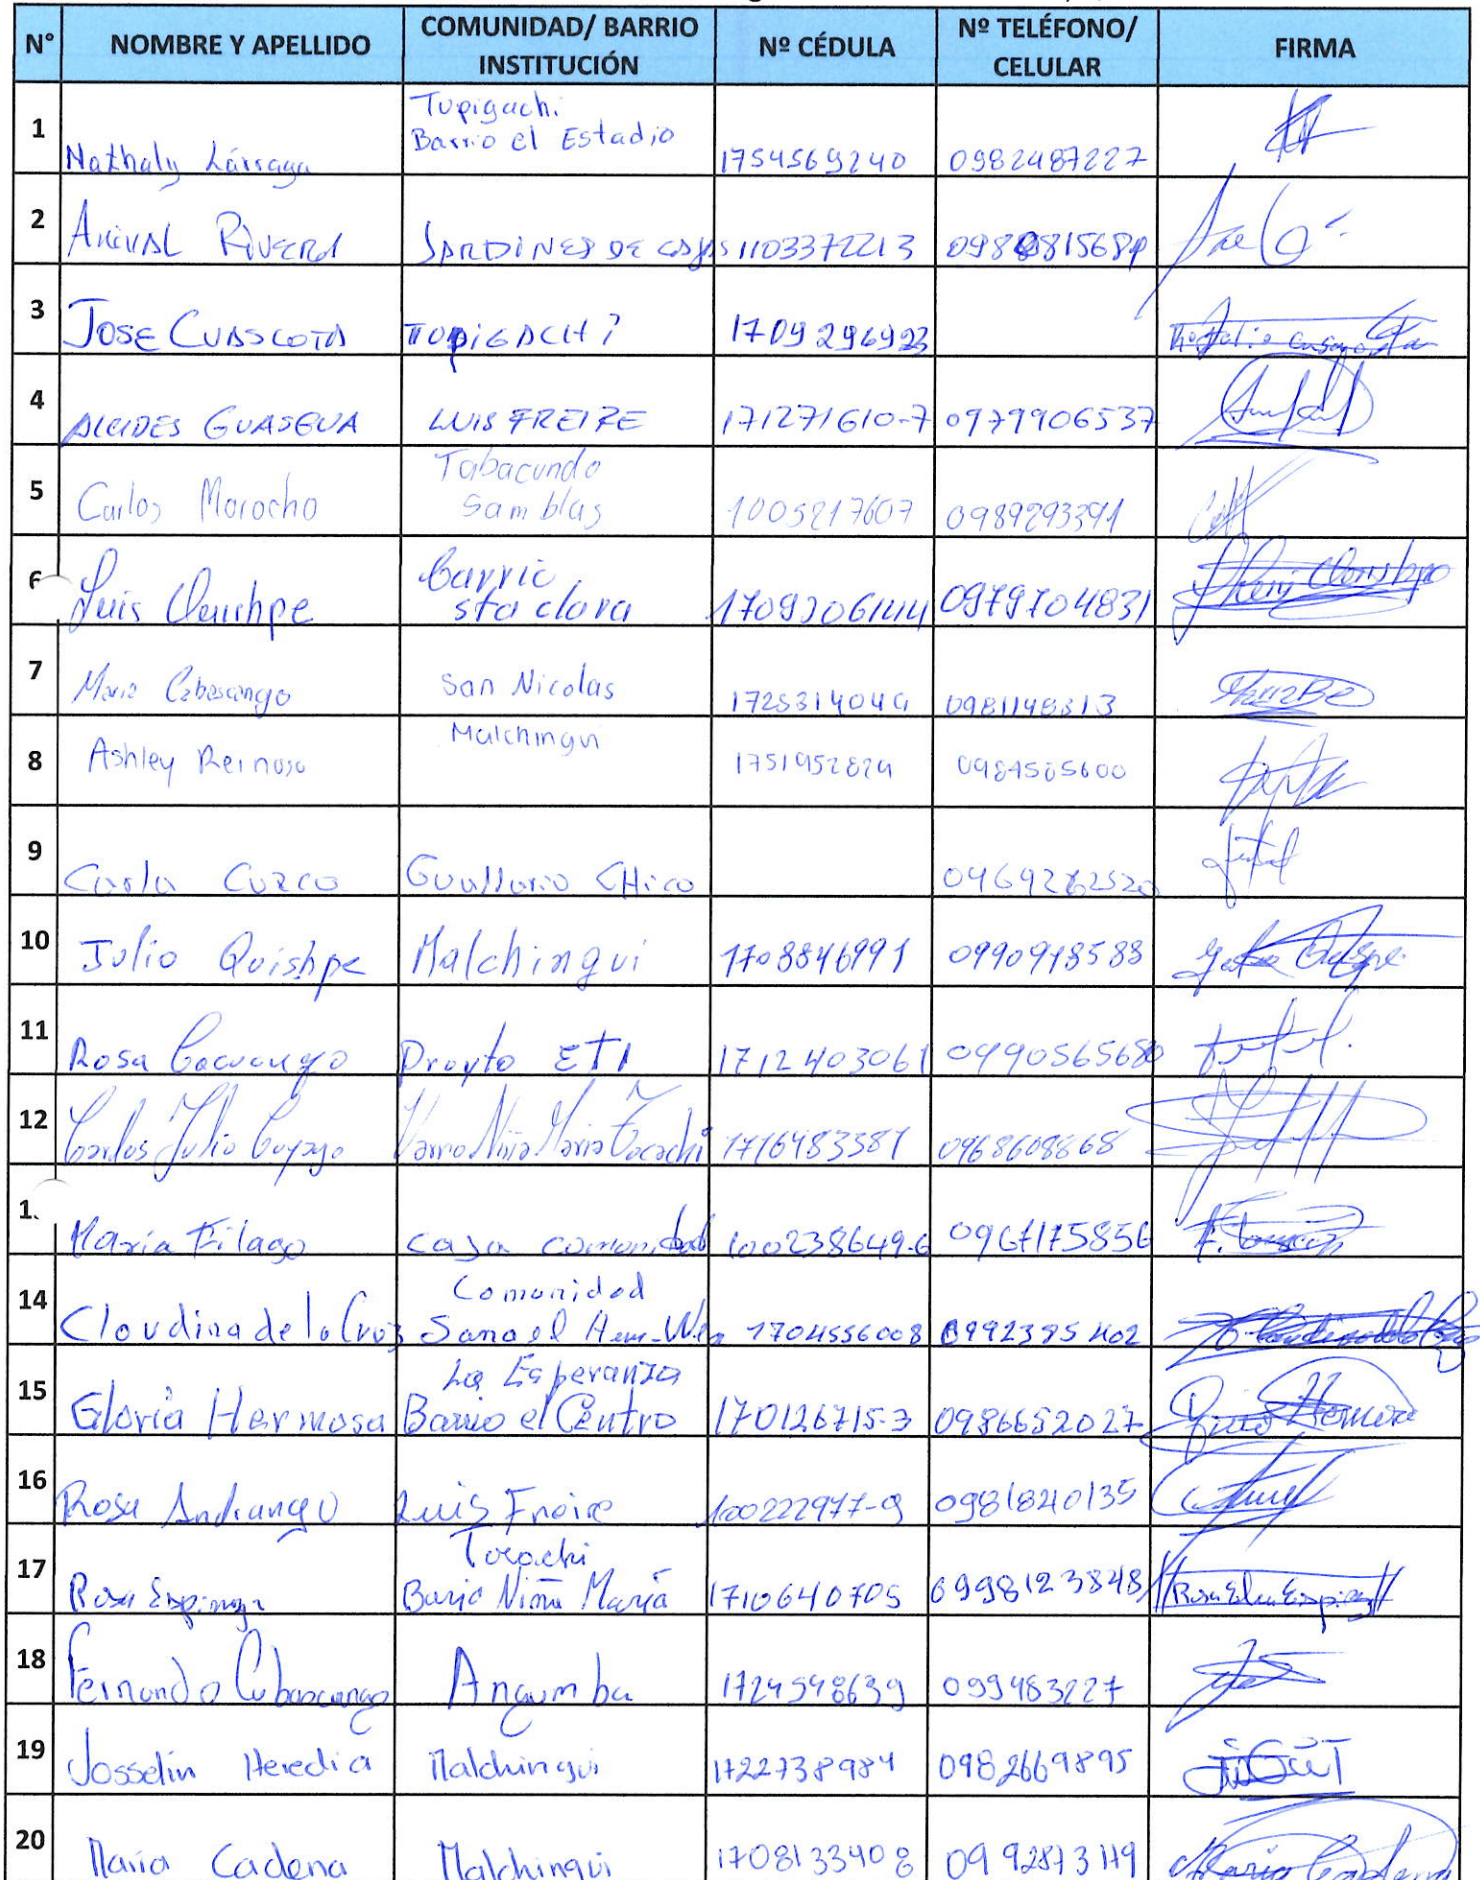 N° NOMBRE Y APELLIDO COMUNIDAD/ BARRIO INSTITUCIÓN Nº CÉDULA Nº TELÉFONO/ CELULAR FIRMA
1 Nathaly Lárraga Tupigachi Barrio el Estadio 1754569240 0982487227
2 ANIVAL RIVERA JARDINES DE 1103372213
3 JOSE CUASCOTA TUPIGACHI 1709296923
4 ALCIDES GUASGUA LUIS FREIRE 171271610-7 0979906537
5 Carlos Morocho Tabacundo San blas 1005217607 0989293391
6 Luis barrio sta clara 0979704831
7 Maria Cabascango San Nicolas 0981148313
8 Ashley Reinoso Malchingui 1751952829 0984585600
9 Carla Cuzco Chico
10 Julio Quishpe Malchingui 1708846991 0990918588
11 Rosa Proyto ETI 1712403061 0990565680
12 Carlos Julio Niña Maria Tocachi 1716483381 0968608868
Maria Filago casa comunidad 100238649-6 0967175856
14 Cloudina de la Cruz Comunidad 1704556008 0992395402
15 Gloria Hermosa La Esperanza Barrio el Centro 170126715-3 0986652027
16 Rosa Andrango Luis Freire 100222977-9 0981840135
17 Rosa Espinoza Tocachi Barrio Niña María 1710640705 0998123848
18 Fernando Cabascango Angumba 1724548639 099483227
19 Josselin Heredia Malchingui 1722738984 0982669895
20 Maria Cadena Malchingui 1708133408